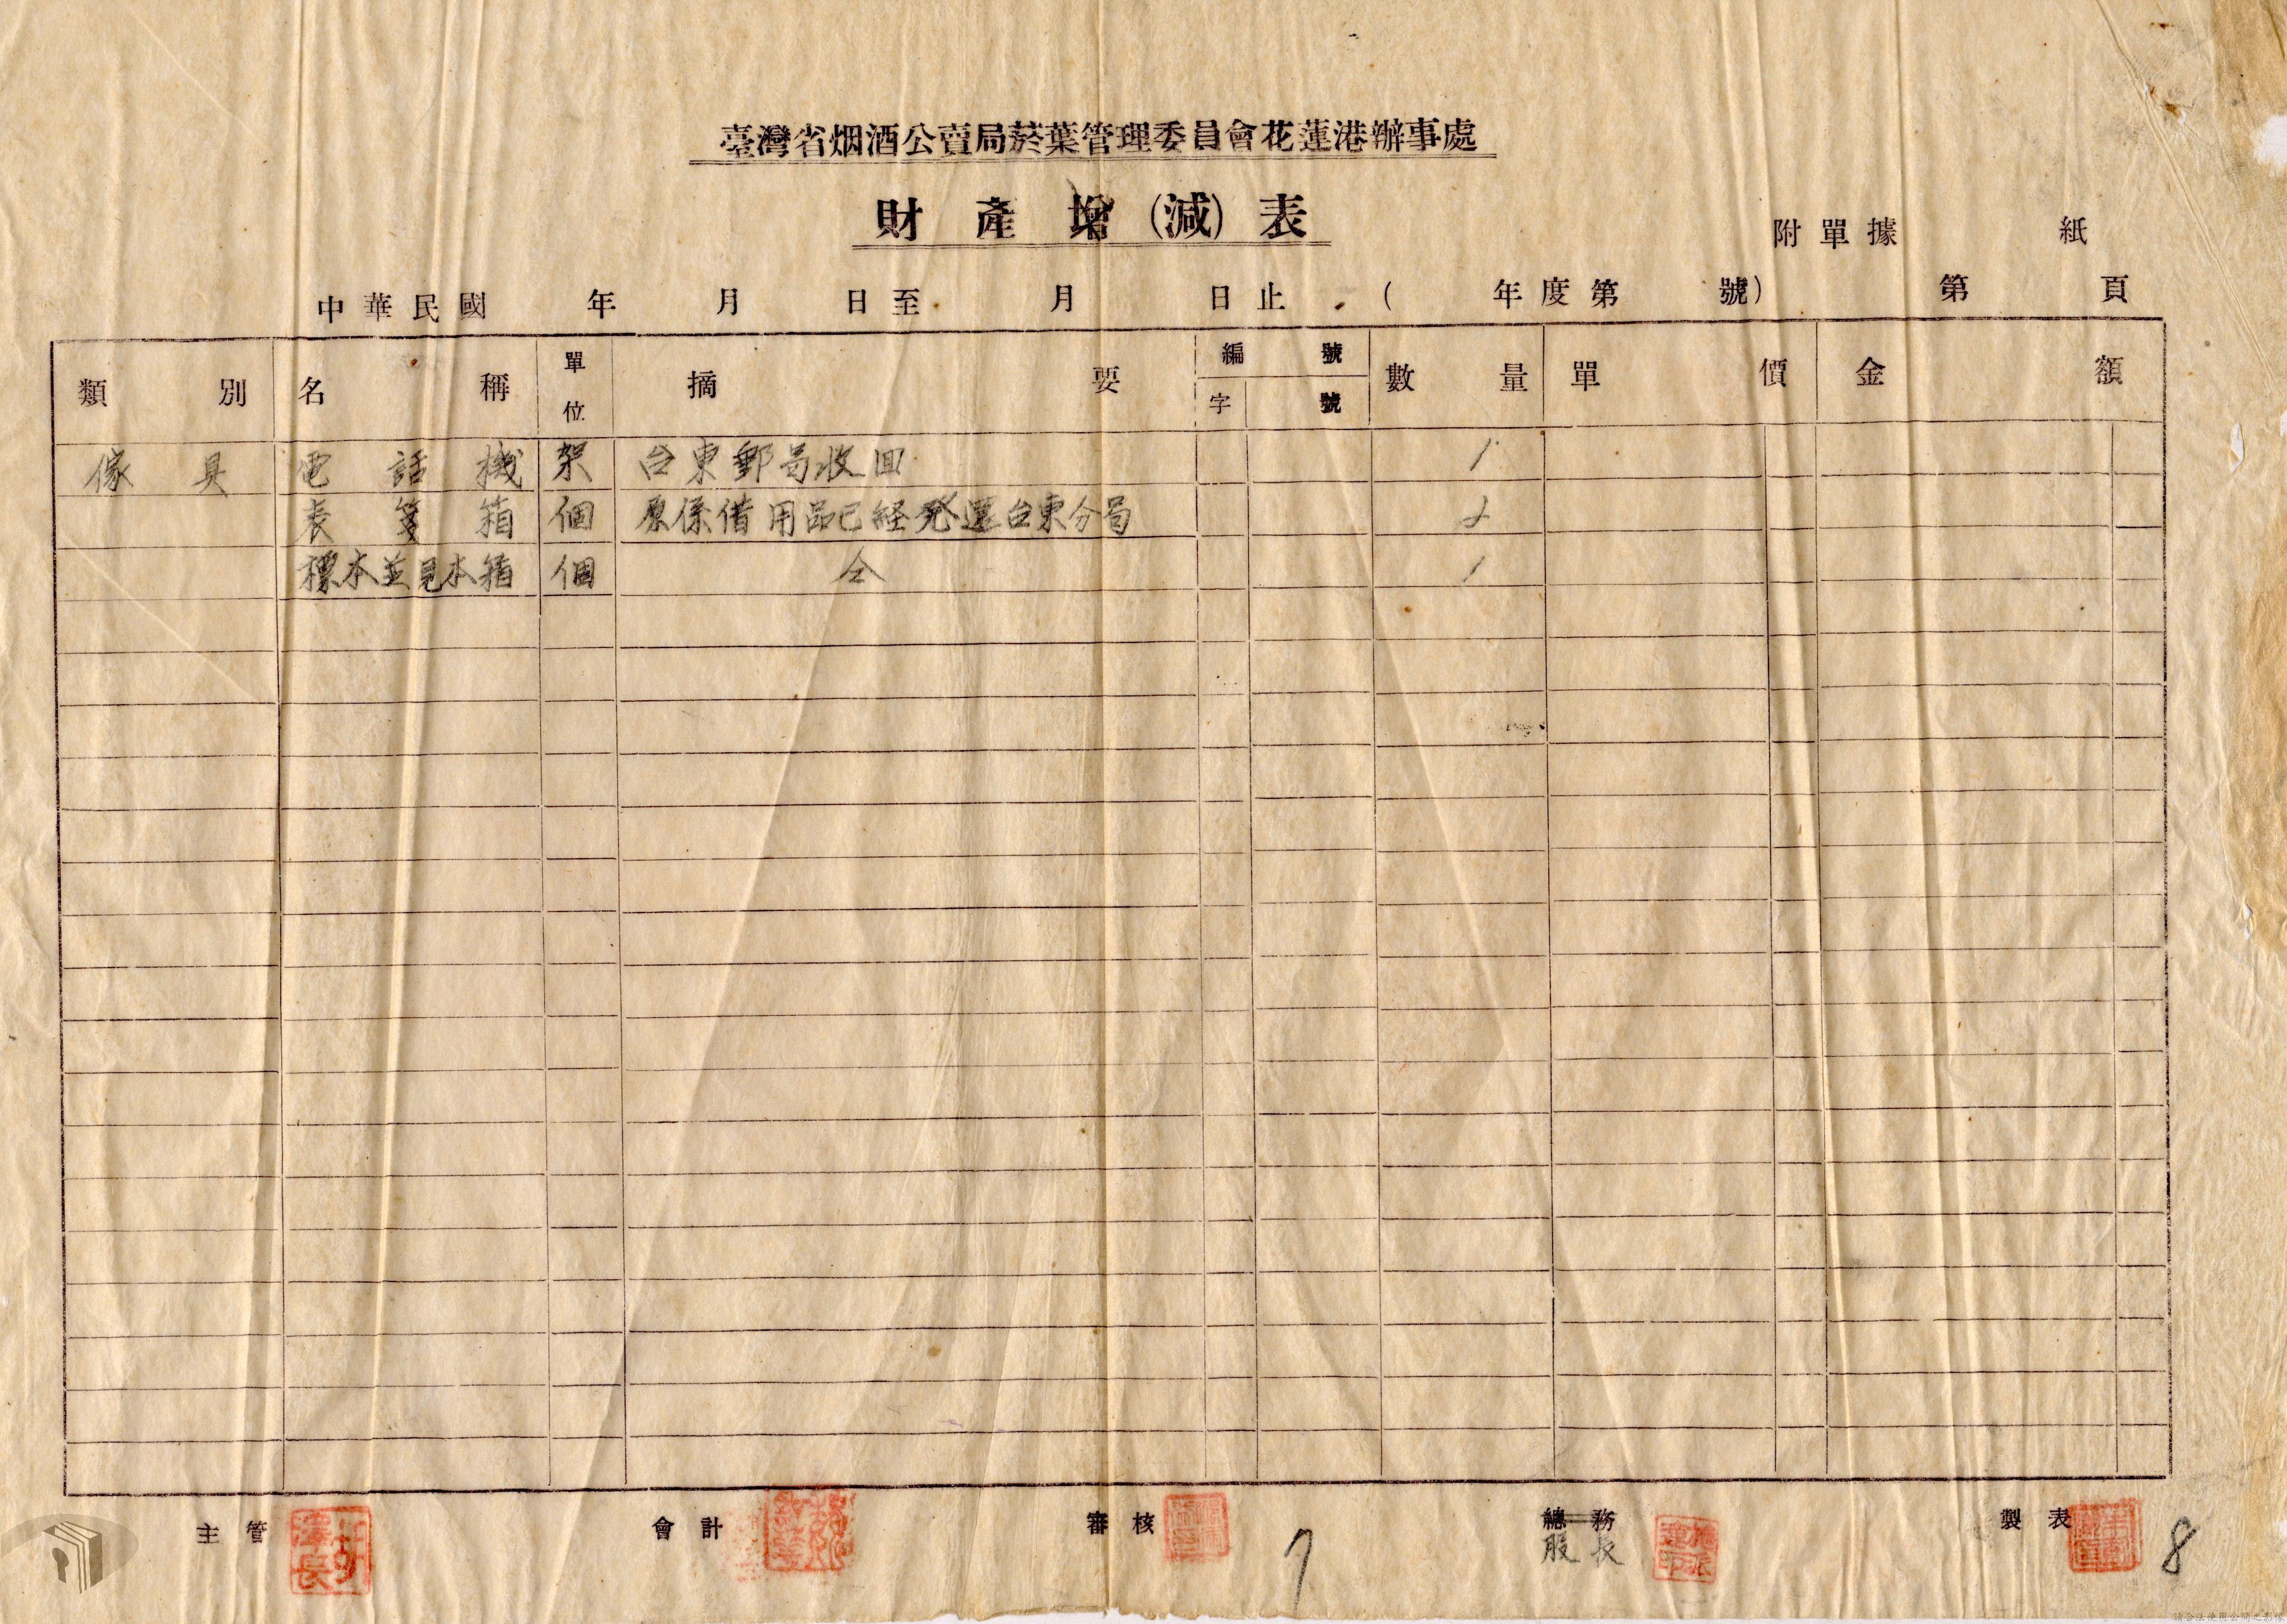 臺灣省烟酒公賣局菸葉管理委員會花蓮港辦事處
財產增(減)表
附單據 紙
中華民國 年 月 日至 月 日止 ( 年度第 號) 第 頁
類別 名稱 單位 摘要 編號 字 號 數量 單價 金額
傢具 電話機 架 台東郵局收回 1
表箋箱 個 原係借用品已経発還台東分局 2
標本並見本箱 個 仝 1
主管 會計 審核 總務 製表
股長
7 8